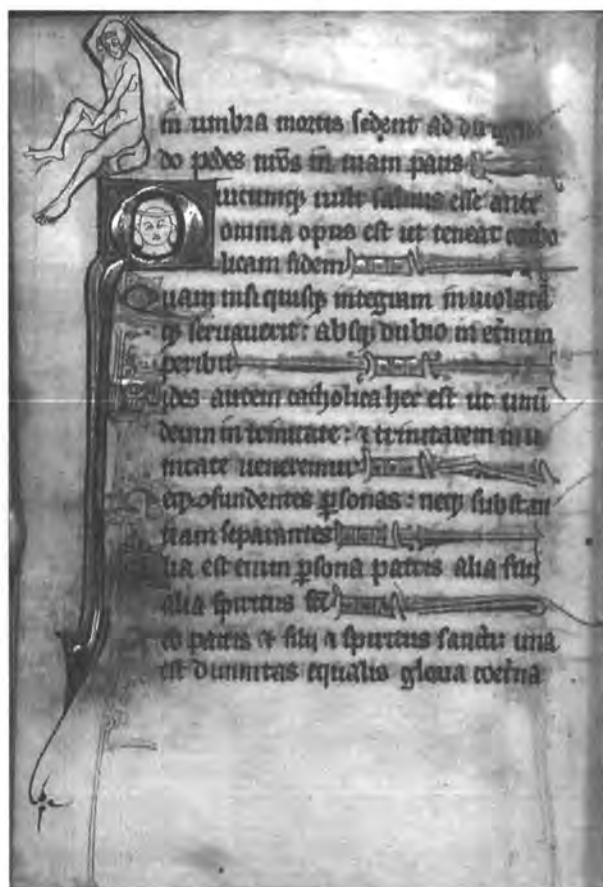 in umbra mortis sedent ad dirigen
do pedes nr̄os in uiam pacis
Quicumqꝫ uult saluus esse ante
omnia opus est ut teneat catho
licam fidem
Quam nisi quisqꝫ integram inuiolatā
qꝫ seruauerit: absqꝫ dubio in et̄num
peribit
Fides autem catholica hec est ut unū
deum in trinitate: ⁊ trinitatem in u
nitate ueneremur
Neqꝫ ꝯfundentes ꝑsonas: neqꝫ substan
tiam separantes
Alia est enim ꝑsona patris alia filij
alia spiritus sc̄i
Sed patris ⁊ filij ⁊ spiritus sancti una
est diuinitas equalis gloria coet̄na